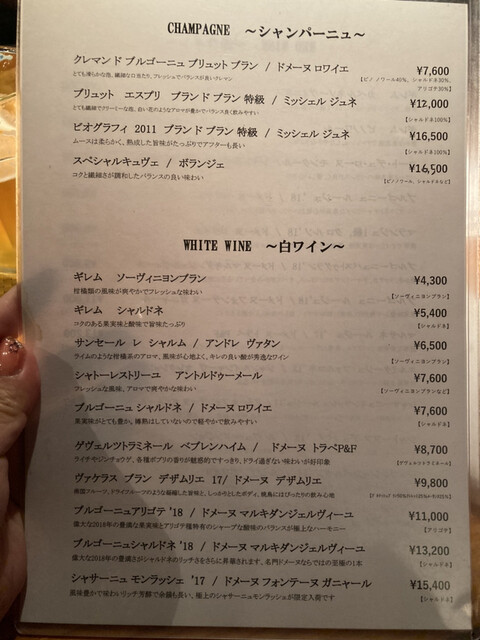 CHAMPAGNE ～シャンパーニュ～
クレマンド ブルゴーニュ ブリュット ブラン / ドメーヌ ロワイエ ¥7,600
とても滑らかな泡、繊細な口当たり、フレッシュでバランスが良いクレマン 【ピノ ノワール40%、シャルドネ30%、
アリゴテ30%】
ブリュット エスプリ ブランド ブラン 特級 / ミッシェル ジュネ ¥12,000
とても繊細でクリーミーな泡、白い花のようなアロマが豊かでバランス良く飲みやすい 【シャルドネ100%】
ビオグラフィ 2011 ブランド ブラン 特級 / ミッシェル ジュネ ¥16,500
ムースは柔らかく、熟成した旨味がたっぷりでアフターも長い 【シャルドネ100%】
スペシャルキュヴェ / ボランジェ ¥16,500
コクと繊細さが調和したバランスの良い味わい 【ピノノワール、シャルドネなど】
WHITE WINE ～白ワイン～
ギレム ソーヴィニヨンブラン ¥4,300
柑橘類の風味が爽やかでフレッシュな味わい 【ソーヴィニヨンブラン】
ギレム シャルドネ ¥5,400
コクのある果実味と酸味で旨味たっぷり 【シャルドネ】
サンセール レ シャルム / アンドレ ヴァタン ¥6,500
ライムのような柑橘系のアロマ、風味が心地よく、キレの良い酸が秀逸なワイン 【ソーヴィニヨンブラン】
シャトーレストリーユ アントルドゥーメール ¥7,600
フレッシュな風味、アロマで爽やかな味わい 【ソーヴィニヨンブランなど】
ブルゴーニュ シャルドネ / ドメーヌ ロワイエ ¥7,600
果実味がとても豊か、樽熟はしていないので軽やかで飲みやすい 【シャルドネ】
ゲヴェルツトラミネール ベブレンハイム / ドメーヌ トラペP&F ¥8,700
ライチやジンチョウゲ、各種ポプリの香りが魅惑的ですっきり、ドライ過ぎない味わいが好印象 【ゲヴェルツトラミネール】
ヴァケラス ブラン デザムリエ 17/ ドメーヌ デザムリエ ¥9,800
南国フルーツ、ドライフルーツのような凝縮した旨味と、しっかりとしたボディ、焼鳥にはぴったりの飲み心地
ブルゴーニュアリゴテ '18 / ドメーヌ マルキダンジェルヴィーユ ¥11,000
偉大な2018年の豊満な果実味とアリゴテ種特有のシャープな酸味のバランスが極上なハーモニー 【アリゴテ】
ブルゴーニュシャルドネ '18 / ドメーヌ マルキダンジェルヴィーユ ¥13,200
偉大な2018年の豊満さがシャルドネのリッチさをさらに昇華されます、名門ドメーヌならではの至極の1本 【シャルドネ】
シャサーニュ モンラッシェ '17 / ドメーヌ フォンテーヌ ガニャール ¥15,400
風味豊かで味わいリッチ芳醇で余韻も長い、極上のシャサーニュモンラッシェが限定入荷です 【シャルドネ】